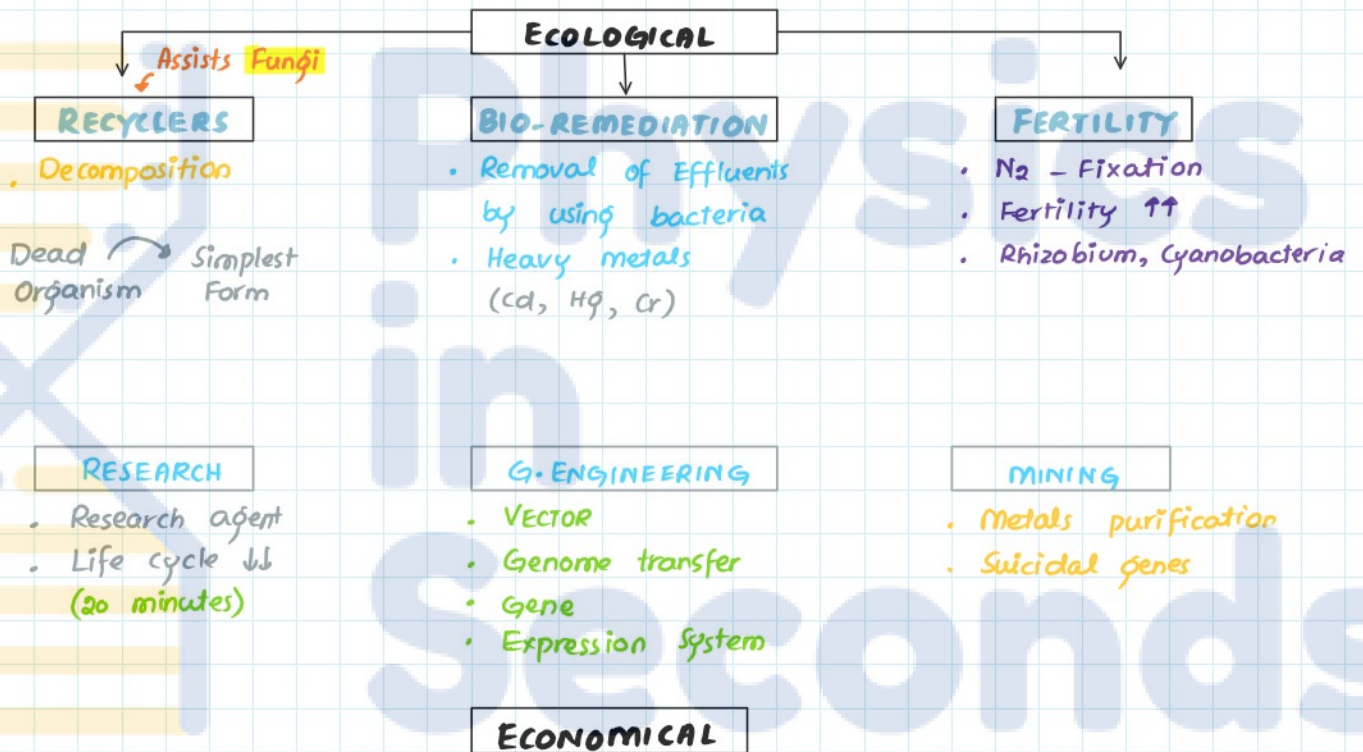 ECOLOGICAL
Assists Fungi
RECYCLERS
. Decomposition
Dead Simplest
Organism Form
BIO-REMEDIATION
. Removal of Effluents
by using bacteria
. Heavy metals
(Cd, Hg, Cr)
FERTILITY
. N2 - Fixation
. Fertility ↑↑
. Rhizobium, Cyanobacteria
RESEARCH
. Research agent
. Life cycle ↓↓
(20 minutes)
G.ENGINEERING
. VECTOR
. Genome transfer
. Gene
. Expression System
MINING
. Metals purification
. Suicidal genes
ECONOMICAL
Physics
in
Seconds